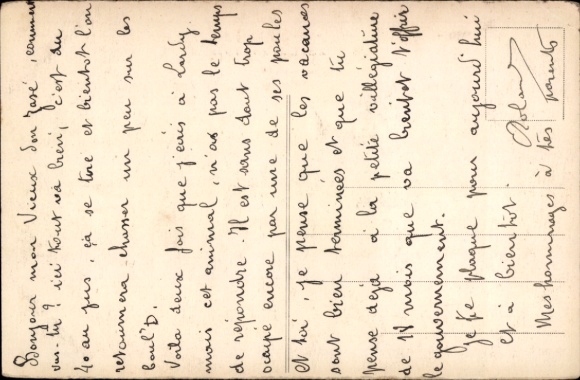 Bonjour mon Vieux Don José, comment
vas-tu ? ici tout va bien, c'est du
40 au jus, ça se tire et bientot l'on
retournera chasser un peu sur les
boul'D.
Voila deux fois que j'ecris à
mais cet animal, n'a pas le temps
de répondre. Il est sans dout trop
ocupé encore par une de ses poules
et toi, je pense que les vacances
sont bien terminées et que tu
pense déjà à la petite villégiature
de 18 mois que va bientot t'offrir
le gouvernement.
je te plaque pour aujourd'hui
et à bientot.
Roland
Mes hommages à tes parents